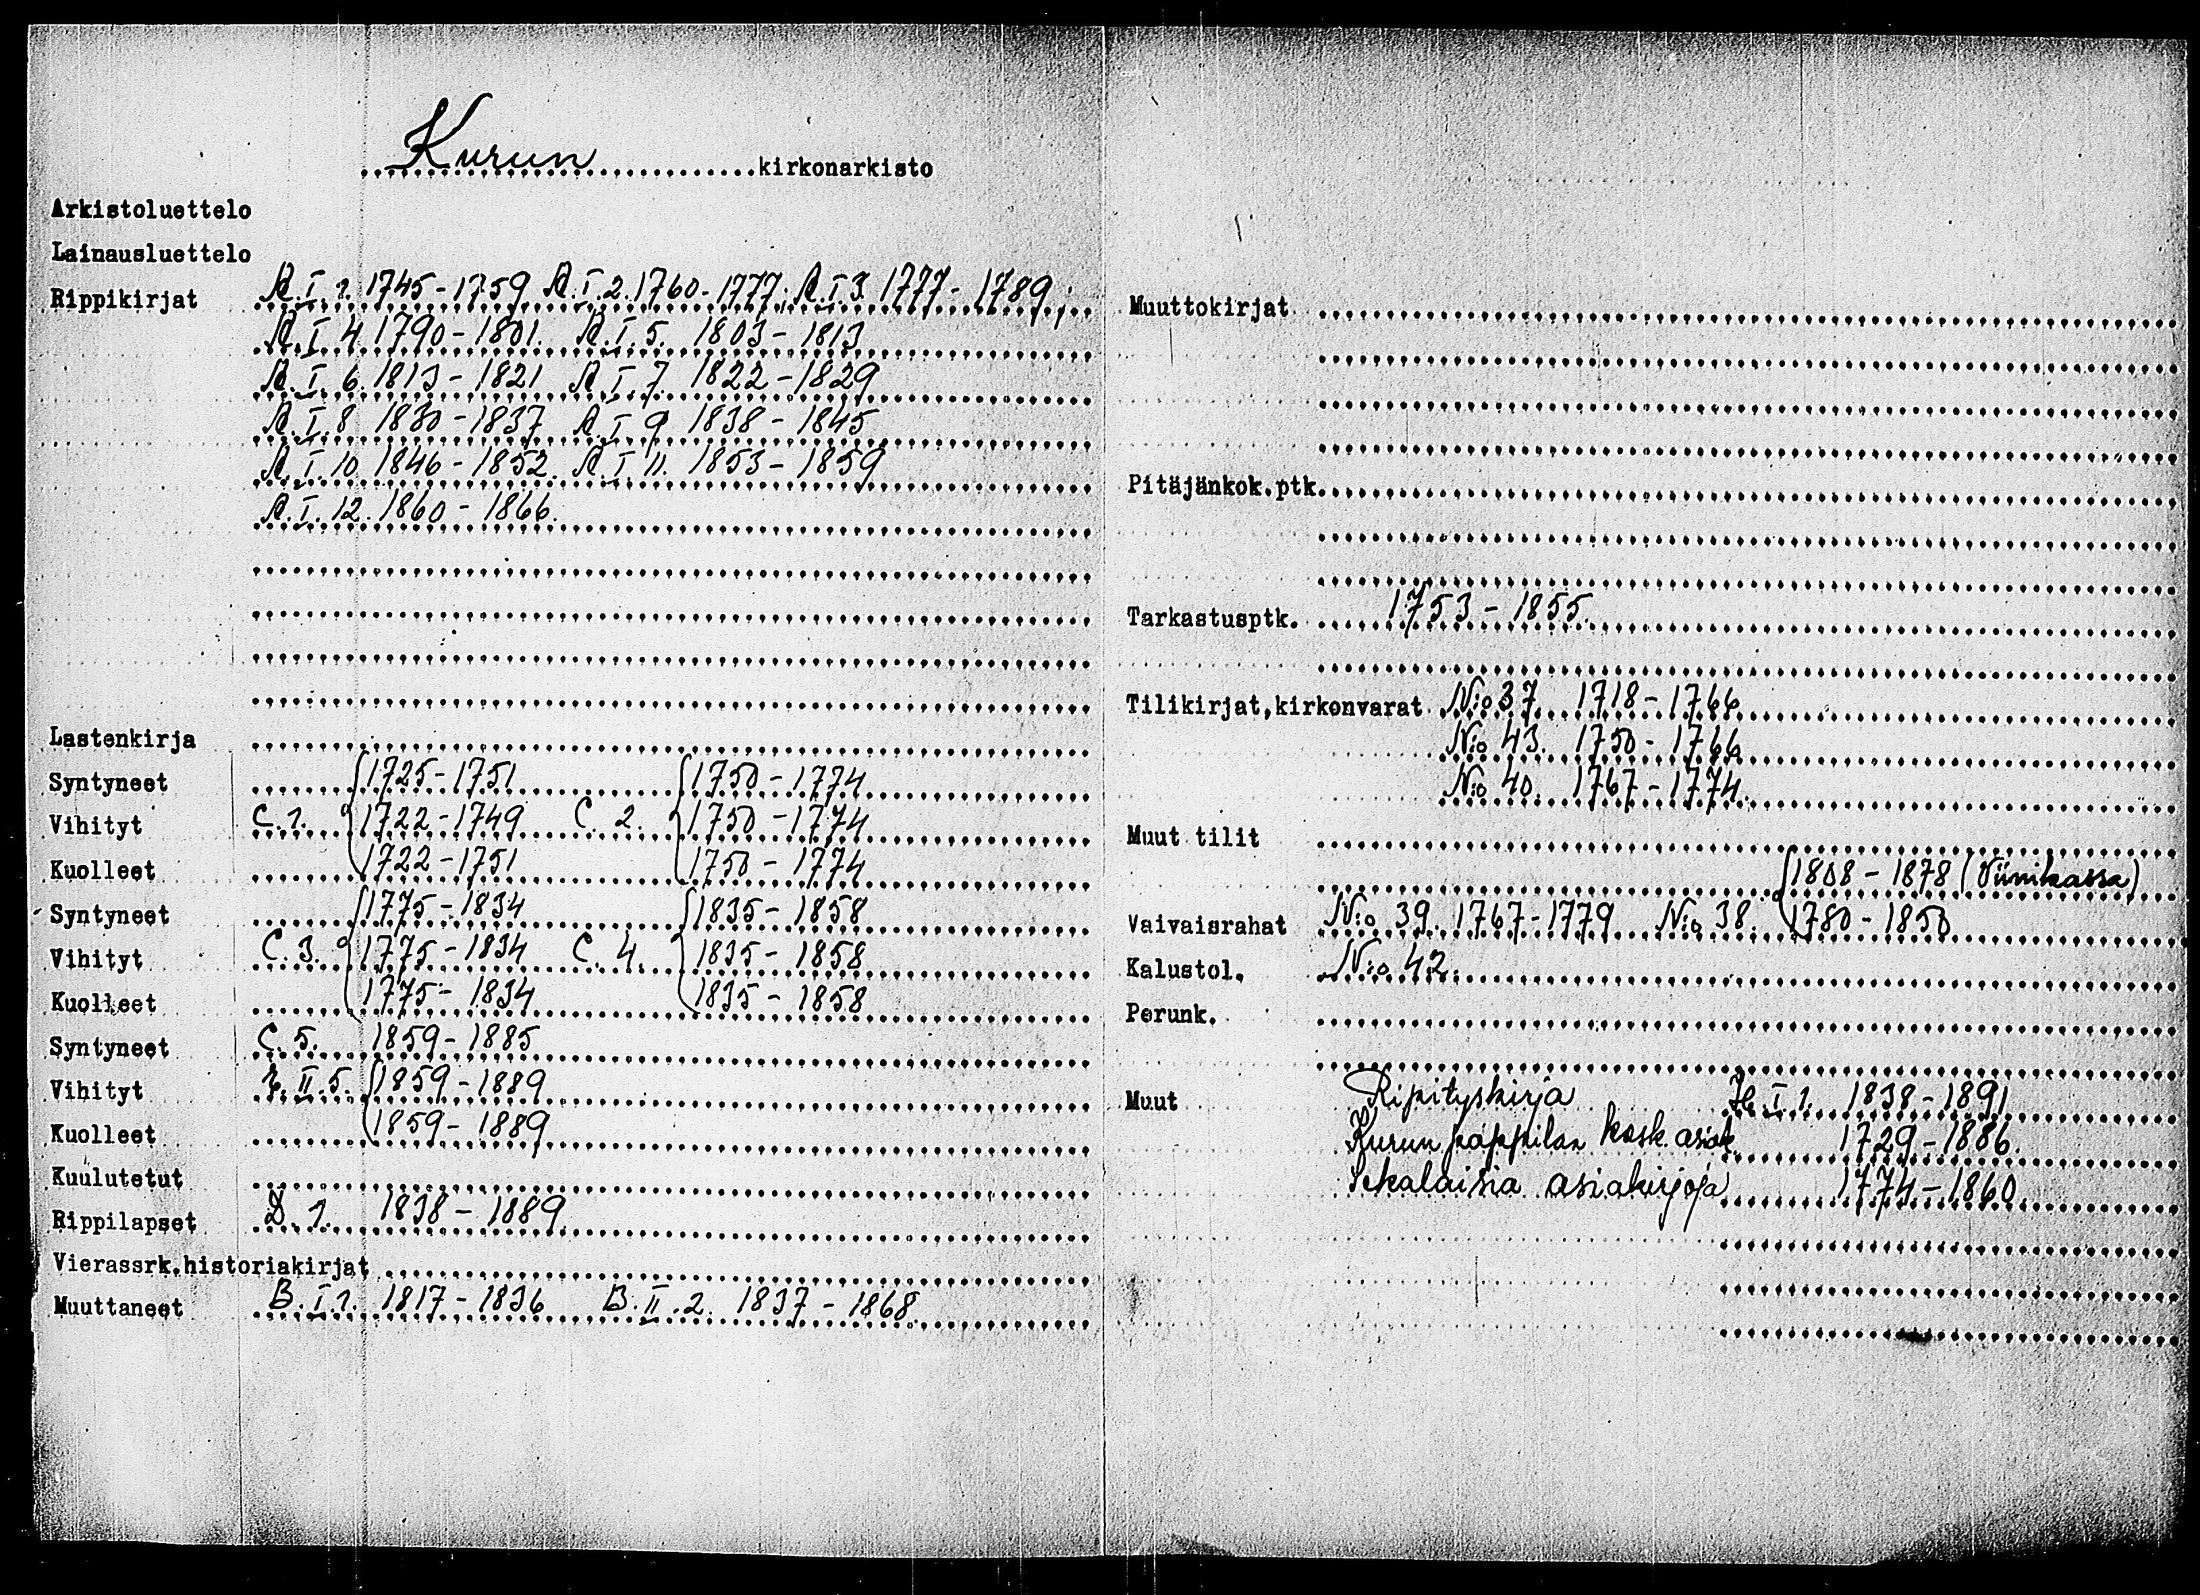 Kurun kirkonarkisto
Arkistoluettelo
Lainausluettelo
Rippikirjat A.I.1. 1745-1759 A.I.2. 1760-1777; A.I.3. 1777-1789;
A.I.4. 1790-1801. A.I.5. 1803-1813
A.I.6. 1813-1821 A.I.7. 1822-1829
A.I.8 1830-1837 A.I.9 1838-1845
A.I.10. 1846-1852. A.I.11. 1853-1859
A.I.12. 1860-1866.
Lastenkirja
Syntyneet 1725-1751 1750-1774
Vihityt C.1. 1722-1749 C.2. 1750-1774
Kuolleet 1722-1751 1750-1774
Syntyneet 1775-1834 1835-1858
Vihityt C.3. 1775-1834 C.4. 1835-1858
Kuolleet 1775-1834 1835-1858
Syntyneet C.5. 1859-1885
Vihityt II.5. 1859-1889
Kuolleet 1859-1889
Kuulutetut
Rippilapset D.1. 1838-1889
Vierassrk.historiakirjat
Muuttaneet B.I.1. 1817-1836 B.II.2. 1837-1868.
Muuttokirjat
Pitäjänkok.ptk.
Tarkastusptk. 1753-1855.
Tilikirjat,kirkonvarat N:o 37. 1718-1766
N:o 43. 1750-1766
N:o 40. 1767-1774.
Muut tilit
1808-1878 (Viinikassa)
Vaivaisrahat N:o 39. 1767-1779 N:o 38. 1780-1850
Kalustol. N:o 42.
Perunk.
Muut Ripityskirja I 1. 1838-1891
Kurun pappilan kosk. asiak. 1729-1886.
Sekalaisia asiakirjoja 1774-1860.